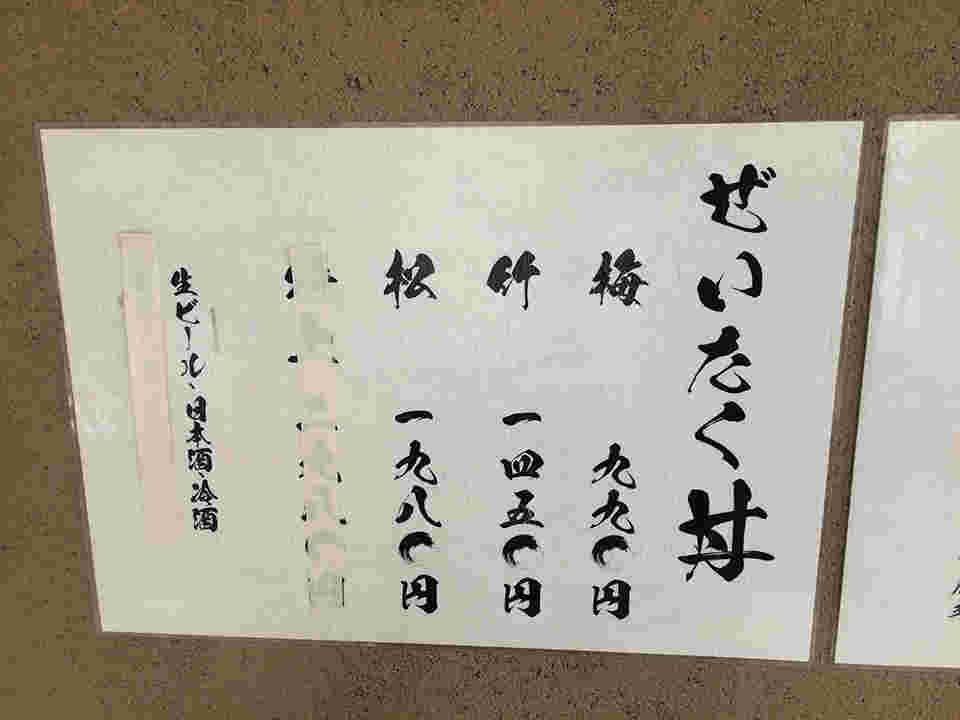 ぜいたく丼
梅 九九〇円
竹 一四五〇円
松 一九八〇円
生ビール、日本酒、冷酒